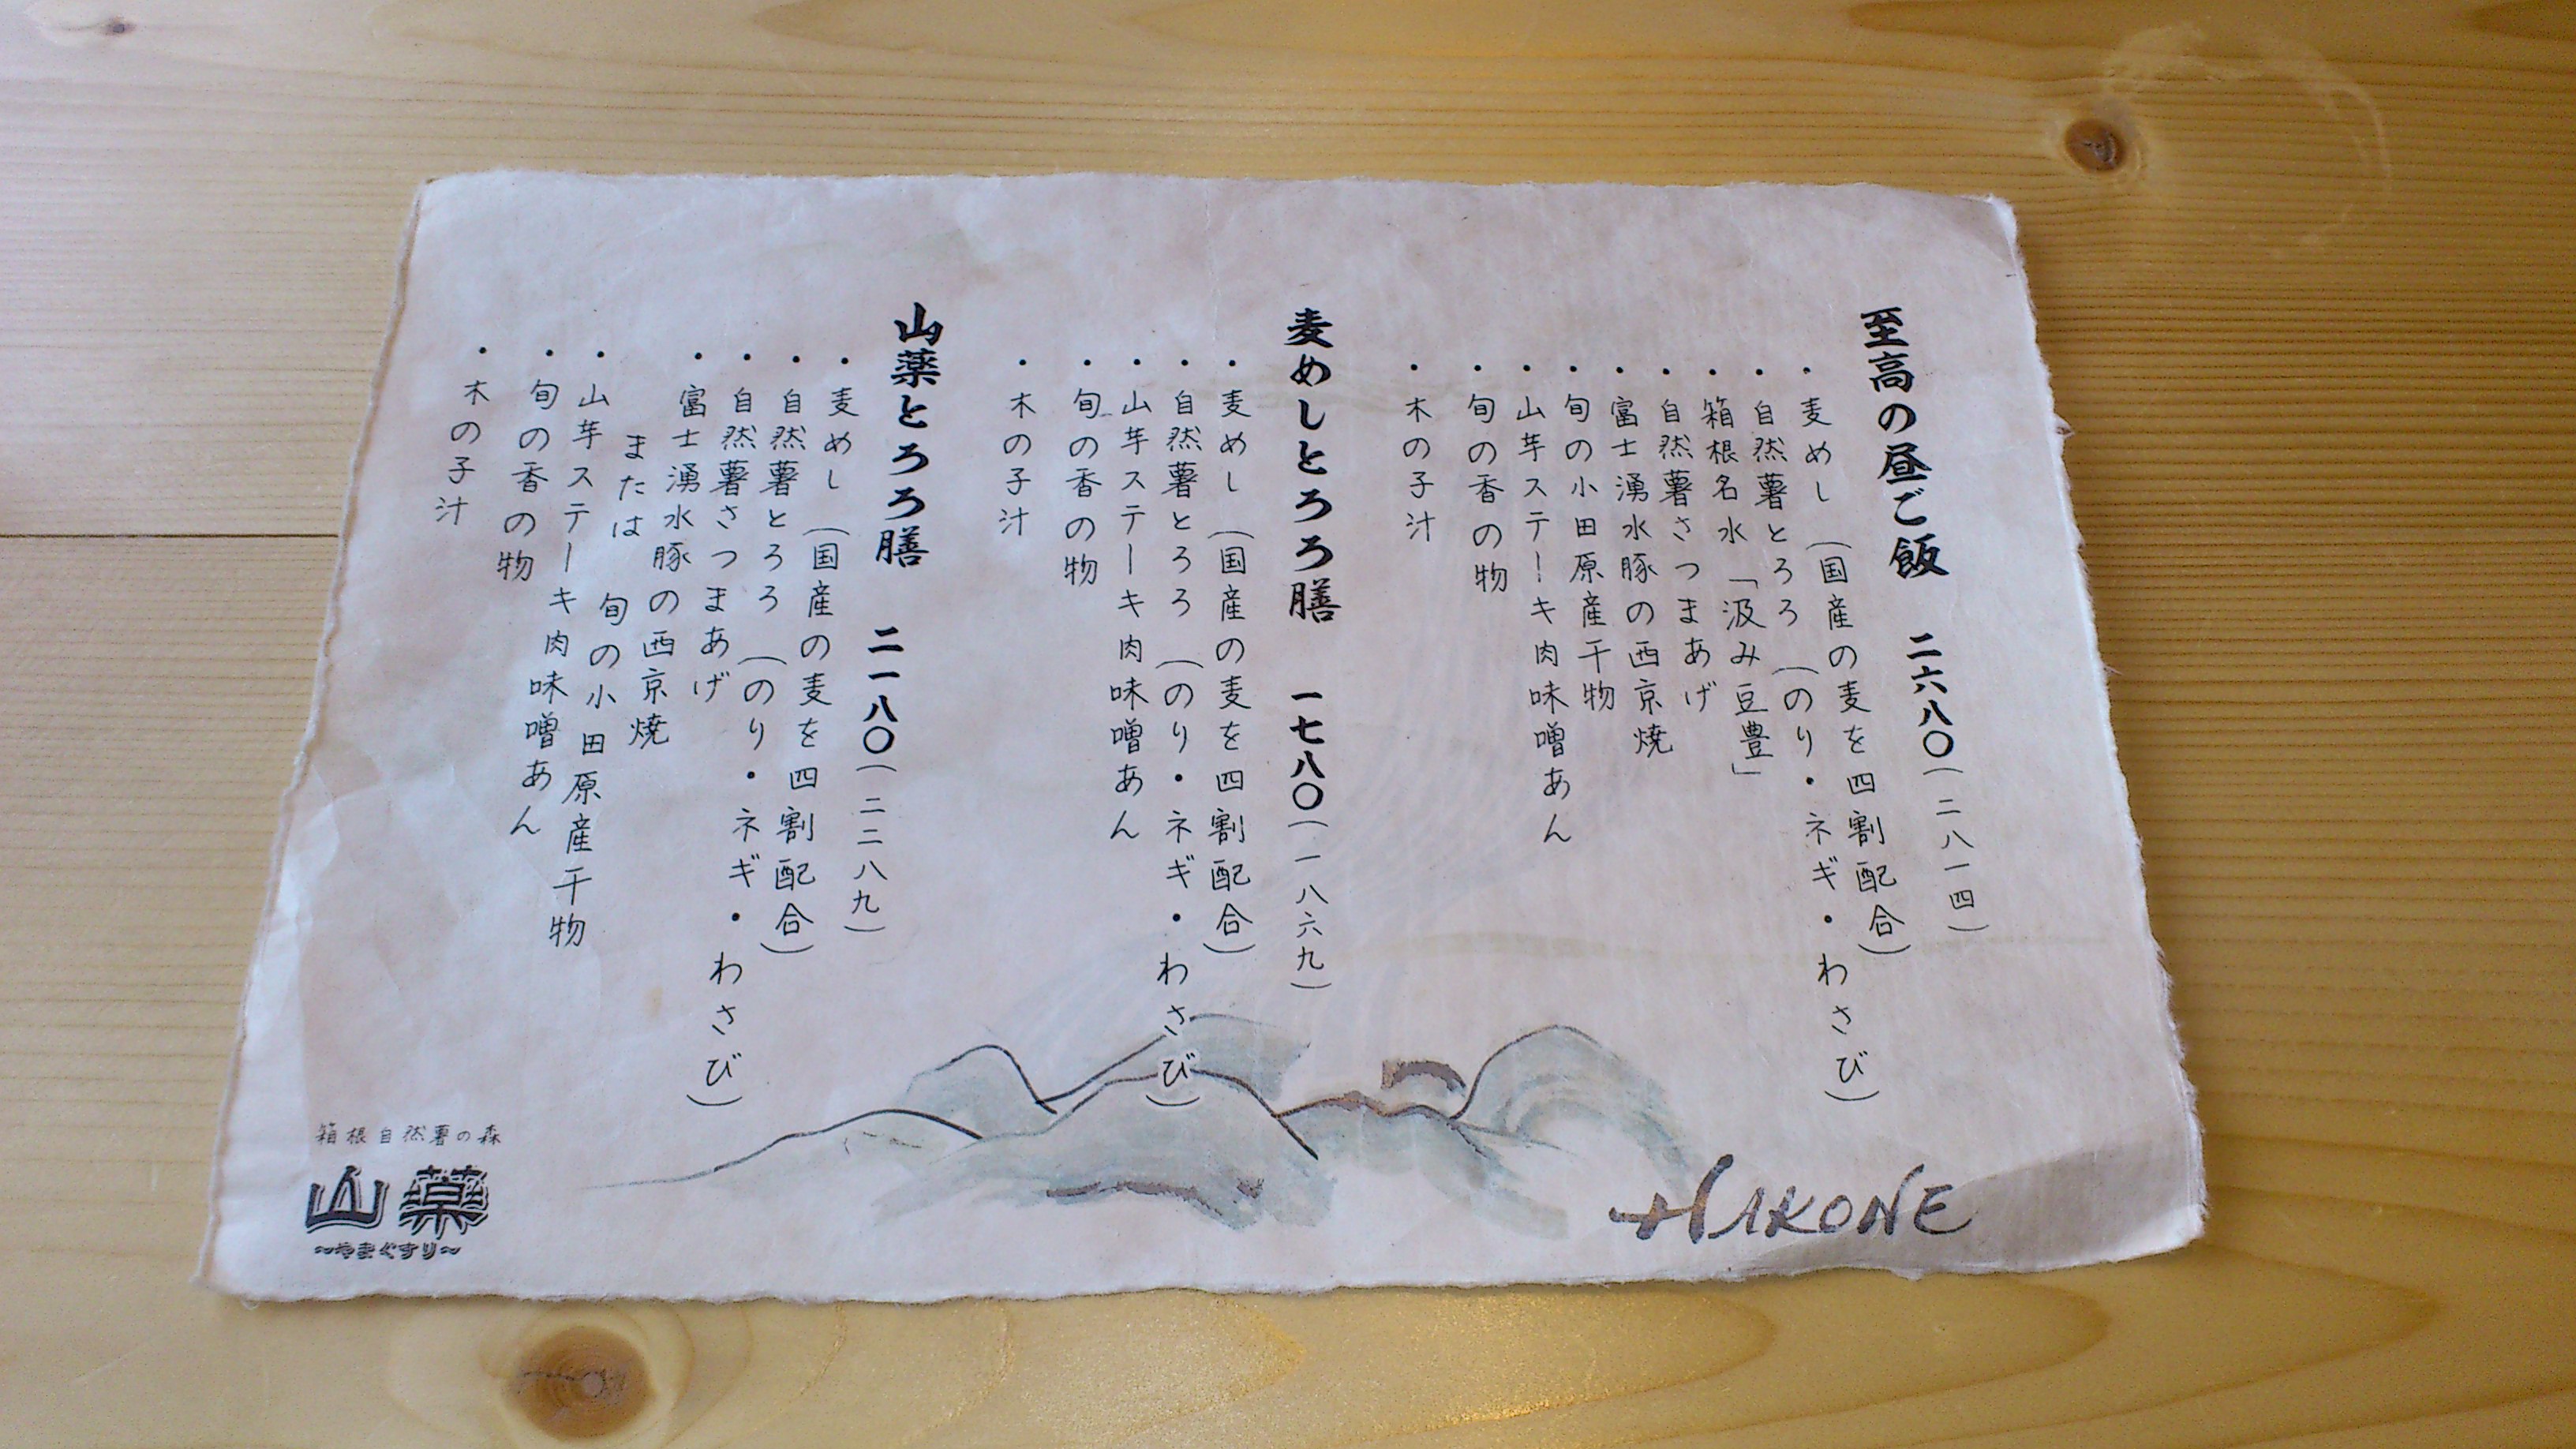 至高の昼ご飯　二六八〇（二八一四）
・麦めし（国産の麦を四割配合）
・自然薯とろろ（のり・ネギ・わさび）
・箱根名水「汲み豆豊」
・自然薯さつまあげ
・富士湧水豚の西京焼
・旬の小田原産干物
・山芋ステーキ肉味噌あん
・旬の香の物
・木の子汁
麦めしとろろ膳　一七八〇（一八六九）
・麦めし（国産の麦を四割配合）
・自然薯とろろ（のり・ネギ・わさび）
・山芋ステーキ肉味噌あん
・旬の香の物
・木の子汁
山薬とろろ膳　二一八〇（二二八九）
・麦めし（国産の麦を四割配合）
・自然薯とろろ（のり・ネギ・わさび）
・自然薯さつまあげ
・富士湧水豚の西京焼
または　旬の小田原産干物
・山芋ステーキ肉味噌あん
・旬の香の物
・木の子汁
箱根自然薯の森
山薬
〜やまぐすり〜
HAKONE